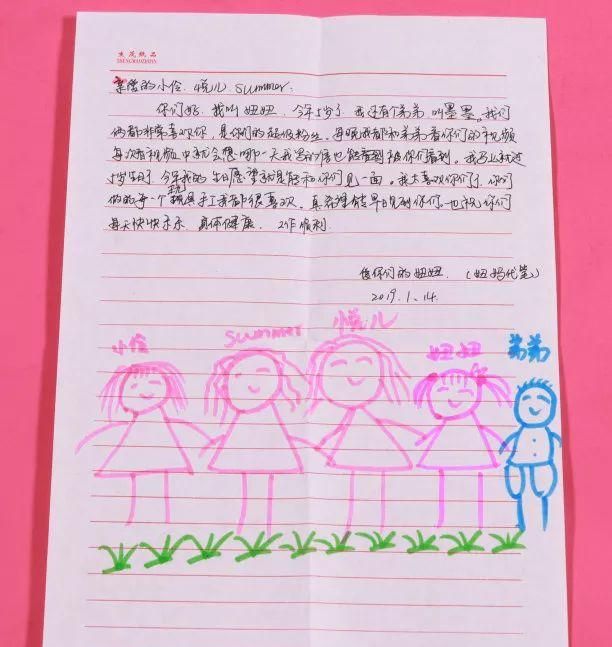 生茂纸品
SHENGMAOZHIPIN
亲爱的小伶 悦儿 Summer:
你们好,我叫妞妞,今年5岁了 我还有个弟弟 叫墨墨,我们
俩都非常喜欢你,是你们的超级粉丝,每晚我都和弟弟看你们的视频
每次看视频中就会想哪一天我的也能看到被你们看到。我马上就过
5岁生日了 今年我的生日愿望就是能和你们见一面。我太喜欢你们了,你们
做的每一个玩具手工我都很喜欢,真希望能早日见到你们 也祝你们
每天快快乐乐 身体健康 工作顺利
爱你们的妞妞 (妞妈代笔)
2019.1.14.
小伶
Summer
小悦儿
妞妞
弟弟